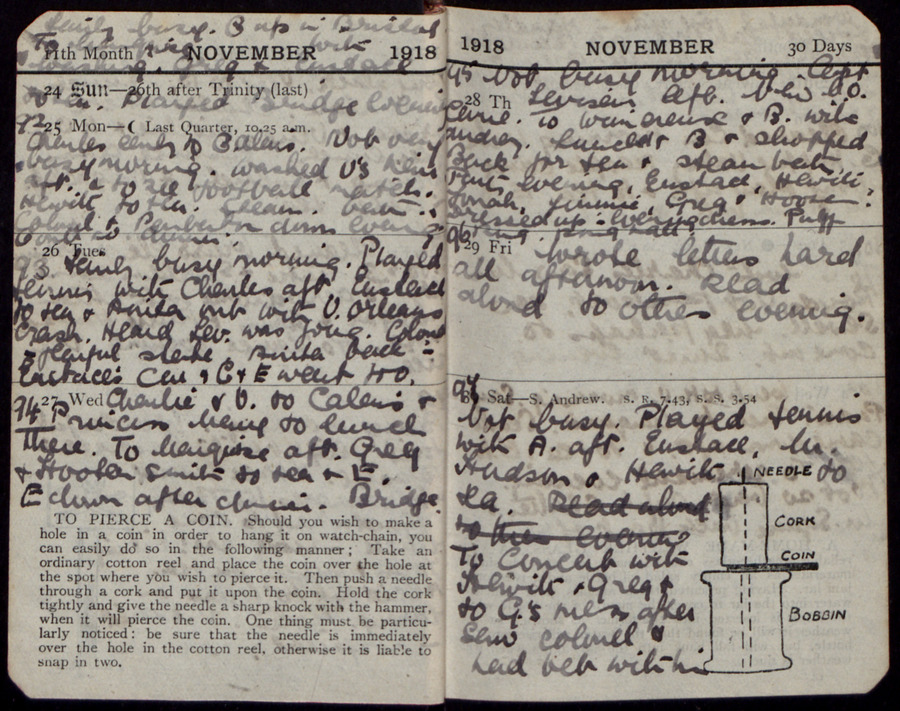 Fairly busy. C up in Bristol
To
11th Month NOVEMBER 1918
Greg & Eustace
24 Sun—26th after Trinity (last)
to tea. Played bridge evening
92
25 Mon—☾ Last Quarter, 10.25 a.m.
Charles early to Calais. Not very
busy morning. Washed V's hair
aft. & to see football match.
Hewitt to tea. Steam bath.
Colonel & Pemberton down evening
26 Tues
93 Fairly busy morning. Played
tennis with Charles aft. Eustace
to tea & Anita out with V. Orleans
crash. Heard Lev. was going. Colonel
fearful state. Anita back in
Eustace's car & C & E went too.
27 Wed Charlie & V. to Calais &
94 Princess Mary to lunch
there. To Marquise aft. Greg
& Hooter Smith to tea & E.
E down after dinner. Bridge.
TO PIERCE A COIN. Should you wish to make a
hole in a coin in order to hang it on watch-chain, you
can easily do so in the following manner; Take an
ordinary cotton reel and place the coin over the hole at
the spot where you wish to pierce it. Then push a needle
through a cork and put it upon the coin. Hold the cork
tightly and give the needle a sharp knock with the hammer,
when it will pierce the coin. One thing must be particu-
larly noticed: be sure that the needle is immediately
over the hole in the cotton reel, otherwise it is liable to
snap in two.
1918 NOVEMBER 30 Days
95 Not busy morning. Capt
28 Th Levison left. New C.O.
came. To Wimereux & B. with
Audrey. Lunched B & shopped
Back for tea & steam bath
evening, Eustace, Hewitt,
Jonah, Jimmie, Greg & Hooter.
Dressed up
96
29 Fri Wrote letters hard
all afternoon. Read
aloud to others evening.
97
30 Sat—S. Andrew. S. R. 7.43, S. S. 3.54
Not busy. Played tennis
with A. aft. Eustace, Mr.
Hudson & Hewitt to
tea. Read aloud
to them evening
To Concert with
Hewitt & Greg &
to G's mess after
Sew colonel &
had bet with him
NEEDLE
CORK
COIN
BOBBIN